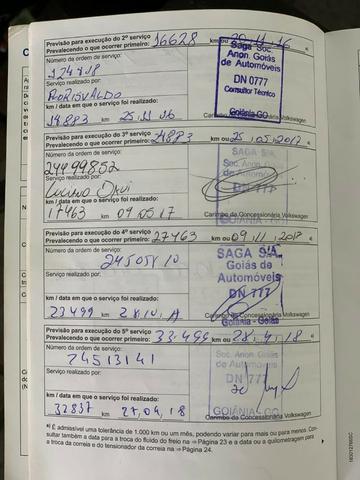 Previsão para execução do 2º serviço
Prevalecendo o que ocorrer primeiro: 16628 km ou 25.11.16
Número da ordem de serviço:
Saga Soc.
Anon. Goiás
de Automóveis
DN 0777
Consultor Técnico
Goiânia-GO
Serviço realizado por:
km / data em que o serviço foi realizado:
14883 25.11.16
Carimbo da Concessionária Volkswagen
Previsão para execução do 3º serviço
Prevalecendo o que ocorrer primeiro: 24883 km ou 25.05.2017
Número da ordem de serviço:
24499852
SAGA S/A
Soc. Anon. Goiás
de Automóveis
DN 777
GOIÂNIA-GO
Serviço realizado por:
km / data em que o serviço foi realizado:
17463 09.05.17
Carimbo da Concessionária Volkswagen
Previsão para execução do 4º serviço
Prevalecendo o que ocorrer primeiro: 27463 km ou 09.11.2017
Número da ordem de serviço:
SAGA S/A.
Goiás de
Automóveis
DN 777
Goiânia - Goiás
Serviço realizado por:
km / data em que o serviço foi realizado:
23499
Carimbo da Concessionária Volkswagen
Previsão para execução do 5º serviço
Prevalecendo o que ocorrer primeiro: 33.499 km ou 28.4.18
Número da ordem de serviço:
24513141
Soc. Anon. Goiás
de Automóveis
DN 777
GOIÂNIA-GO
Serviço realizado por:
km / data em que o serviço foi realizado:
32837 27.04.18
Carimbo da Concessionária Volkswagen
a) É admissível uma tolerância de 1.000 km ou um mês, podendo variar para mais ou para menos. Con-
sultar também a data para a troca do fluido do freio na ⇒ Página 23 e a data ou a quilometragem para
a troca da correia e do tensionador da correia na ⇒ Página 24.